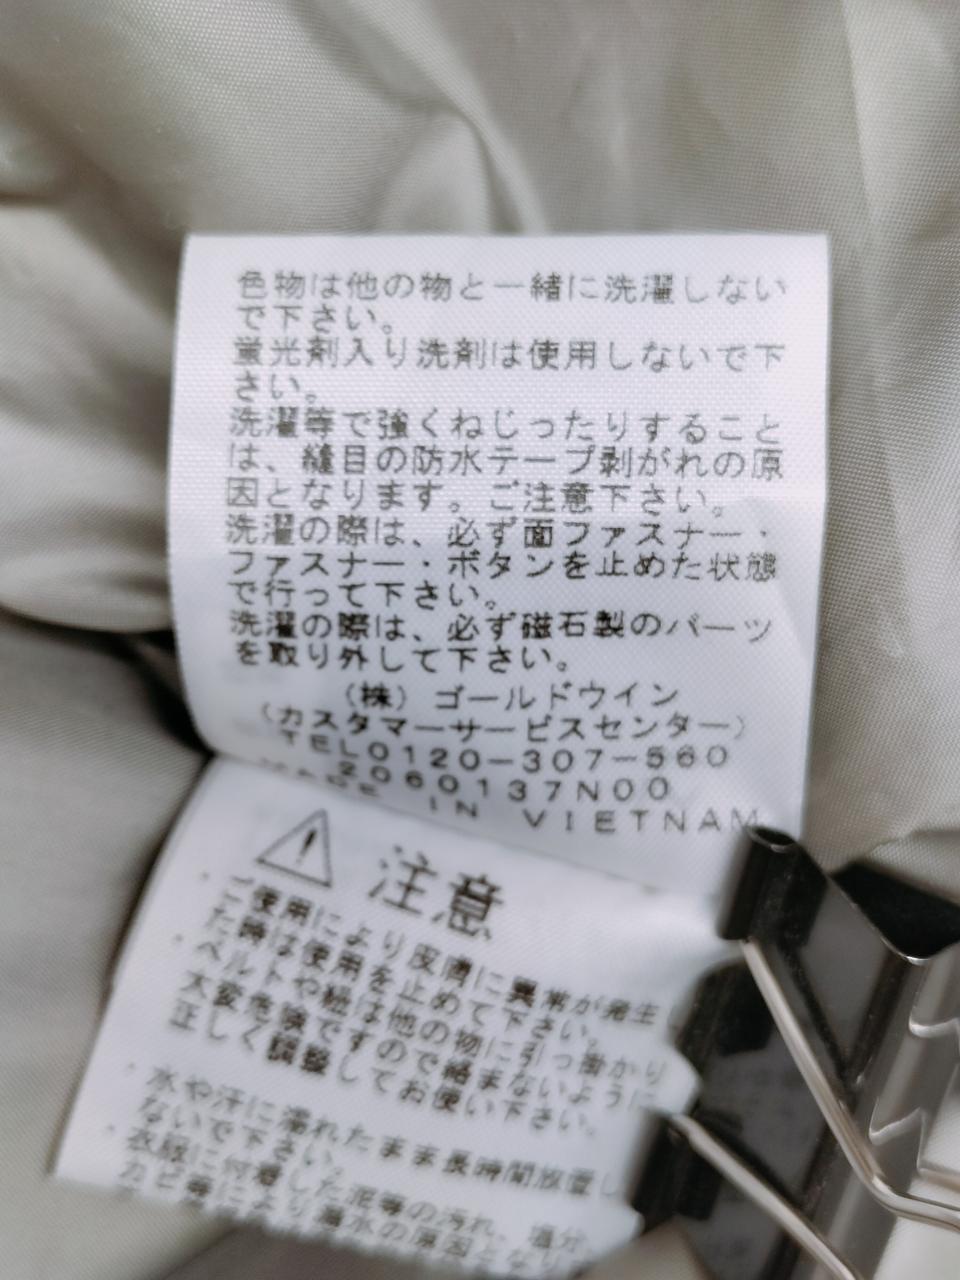 色物は他の物と一緒に洗濯しない
で下さい。
蛍光剤入り洗剤は使用しないで下
さい。
洗濯等で強くねじったりすること
は、縫目の防水テープ剥がれの原
因となります。ご注意下さい。
洗濯の際は、必ず面ファスナー・
ファスナー・ボタンを止めた状態
で行って下さい。
洗濯の際は、必ず磁石製のパーツ
を取り外して下さい。
（株）ゴールドウイン
（カスタマーサービスセンター）
TEL0120-307-560
2060137N00
MADE IN VIETNAM
注意
・ご使用により皮膚に異常が発生し
た時は使用を止めて下さい。
・ベルトや紐は他の物に引っ掛かり
大変危険ですので絡まないように
正しく調整してお使い下さい。
・水や汗に濡れたまま長時間放置し
ないで下さい。
・衣服に付着した泥等の汚れ、塩分、
カビ等により漏水の原因となり